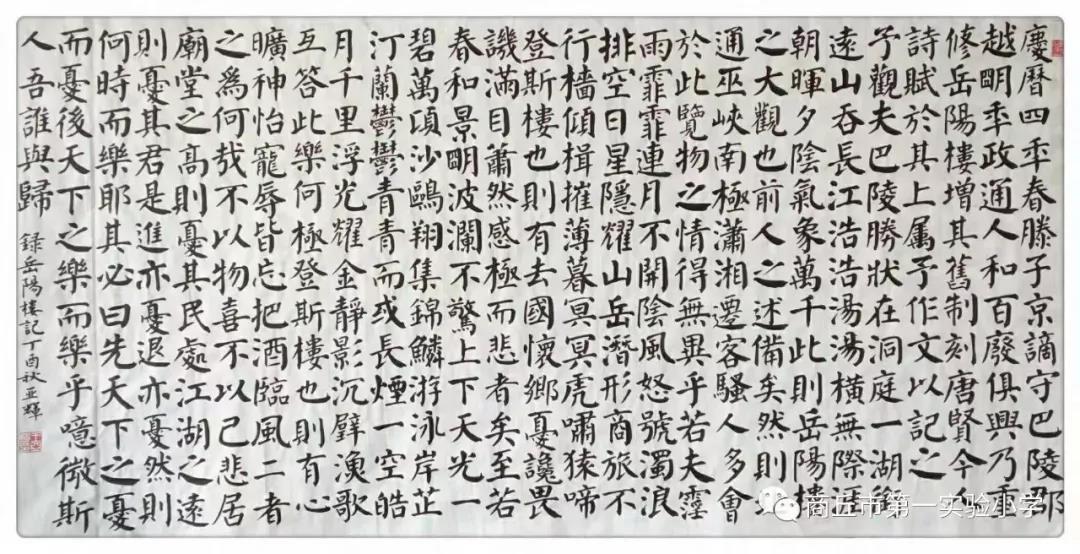 慶曆四年春滕子京謫守巴陵郡
越明年政通人和百廢俱興乃重
修岳陽樓增其舊制刻唐賢今人
詩賦於其上属予作文以記之
予觀夫巴陵勝狀在洞庭一湖銜
遠山吞長江浩浩湯湯橫無際涯
朝暉夕陰氣象萬千此則岳陽樓
之大觀也前人之述備矣然則北
通巫峽南極瀟湘遷客騷人多會
於此覽物之情得無異乎若夫霪
雨霏霏連月不開陰風怒號濁浪
排空日星隱耀山岳潛形商旅不
行檣傾楫摧薄暮冥冥虎嘯猿啼
登斯樓也則有去國懷鄉憂讒畏
譏滿目蕭然感極而悲者矣至若
春和景明波瀾不驚上下天光一
碧萬頃沙鷗翔集錦鱗游泳岸芷
汀蘭鬱鬱青青而或長煙一空皓
月千里浮光耀金靜影沉璧漁歌
互答此樂何極登斯樓也則有心
曠神怡寵辱皆忘把酒臨風二者
之為何哉不以物喜不以己悲居
廟堂之高則憂其民處江湖之遠
則憂其君是進亦憂退亦憂然則
何時而樂耶其必曰先天下之憂
而憂後天下之樂而樂乎噫微斯
人吾誰與歸
錄岳陽樓記丁酉秋亚輝
商丘市第一实验小学